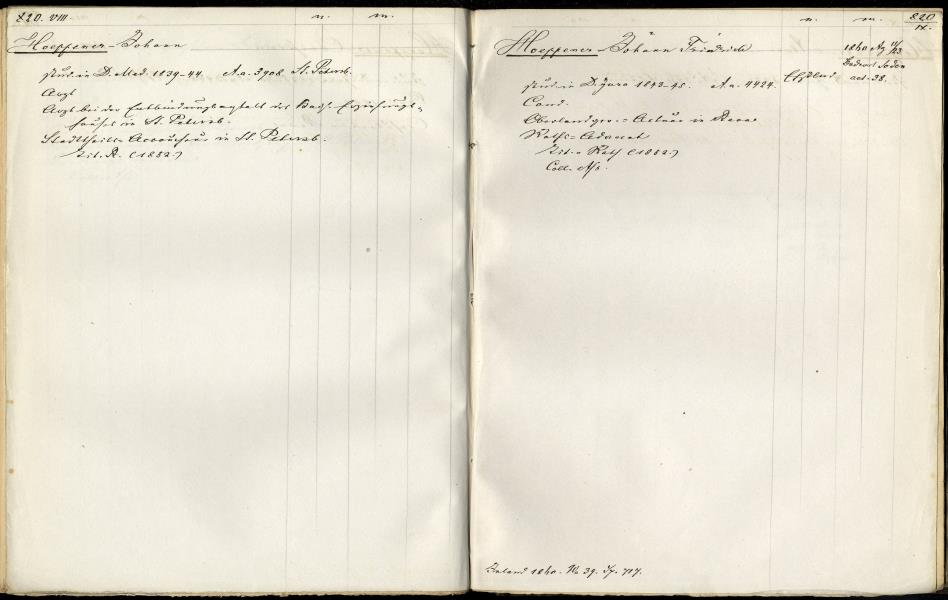 820. VIII.
n. m.
Hoeppener - Johann
stud. in D. Med. 1839-44. A. a. 3908. St. Petersb.
Arzt
Arzt bei der Entbindungsanstalt des Erziehungs=
hauses in St. Petersb.
Stadttheils-Accoucheur in St. Petersb.
Tit. R. (1852.)
n. m. 820
IX.
Hoeppener - Johann Friedrich
1860 Aug 11/23
Badeort Soden
aet. 38.
stud. in D. jura 1843-45. A. a. 4424. Ehstland
Cand.
Oberlandger.= Actuar in Reval
Raths-Advocat
Tit.= Rath (1852.)
Coll. Ass.
Inland 1860. No 39. Sp. 717.